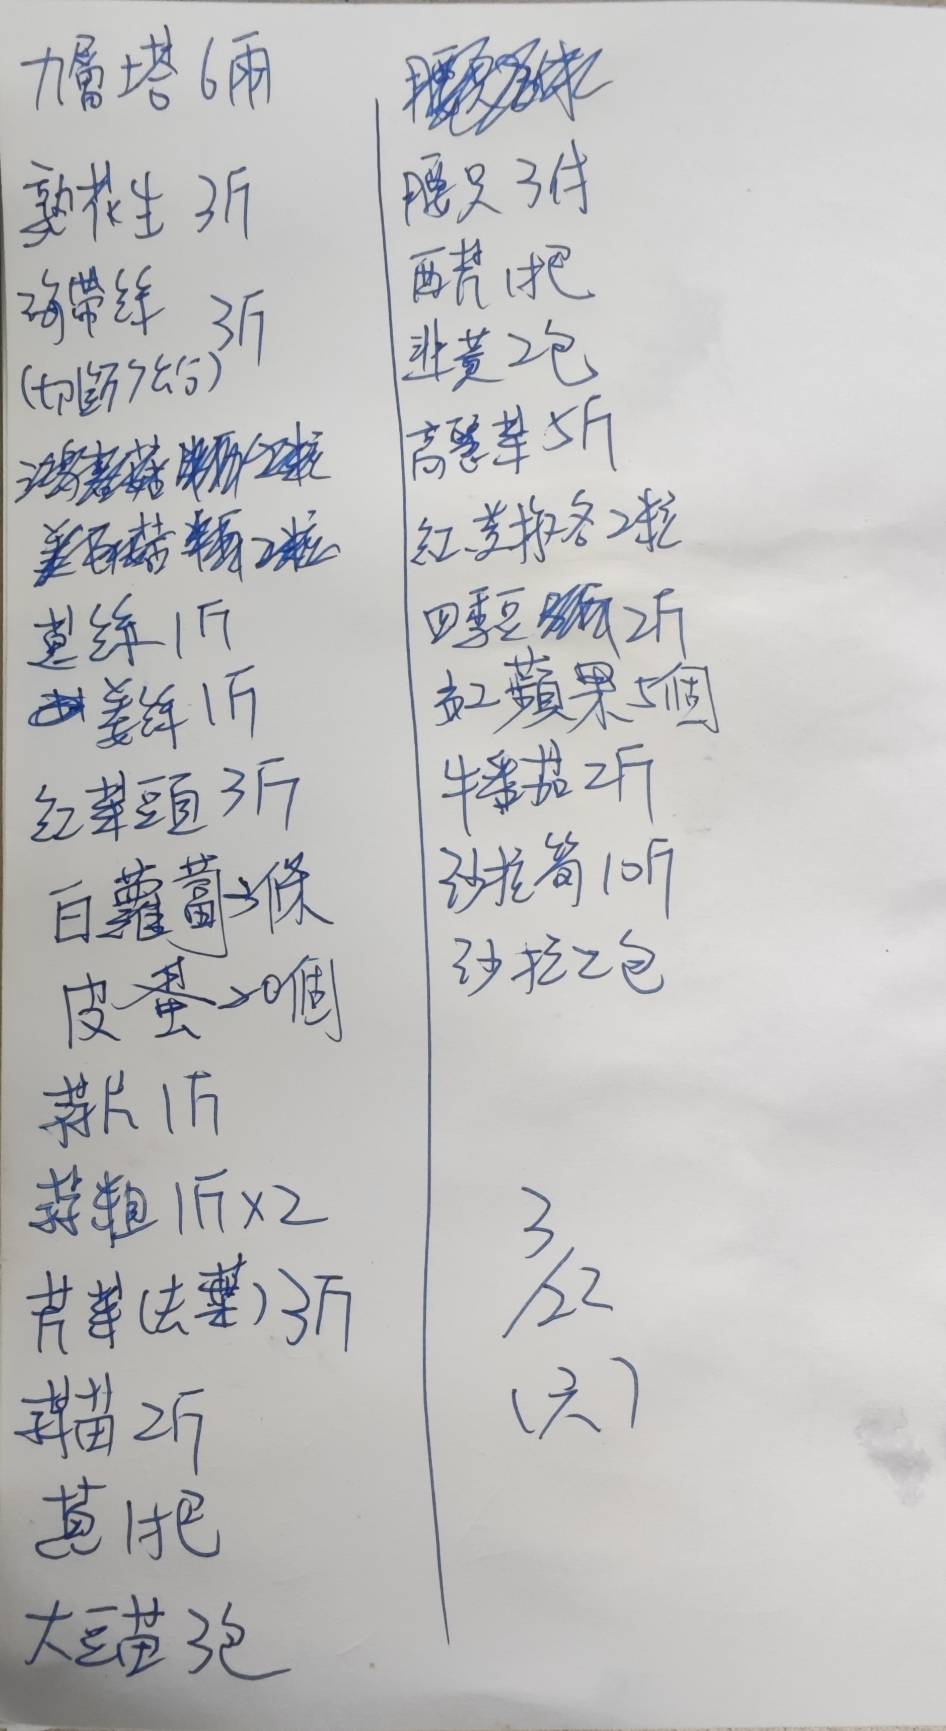 九層塔 6兩
熟花生 3斤
海帶絲 3斤
(切斷
蔥絲 1斤
姜絲 1斤
紅菜頭 3斤
白蘿蔔 3條
皮蛋 20個
蒜片 1斤
蒜粗 1斤×2
芹菜(去葉) 3斤
蒜苗 2斤
蔥 1把
大豆苗 3包
腰只 3付
西芹 1把
韭黃 2包
高麗菜 5斤
紅黃椒各2粒
四季豆 2斤
紅蘋果 5個
牛番茄 2斤
沙拉筍 10斤
沙拉 2包
3/22
(六)